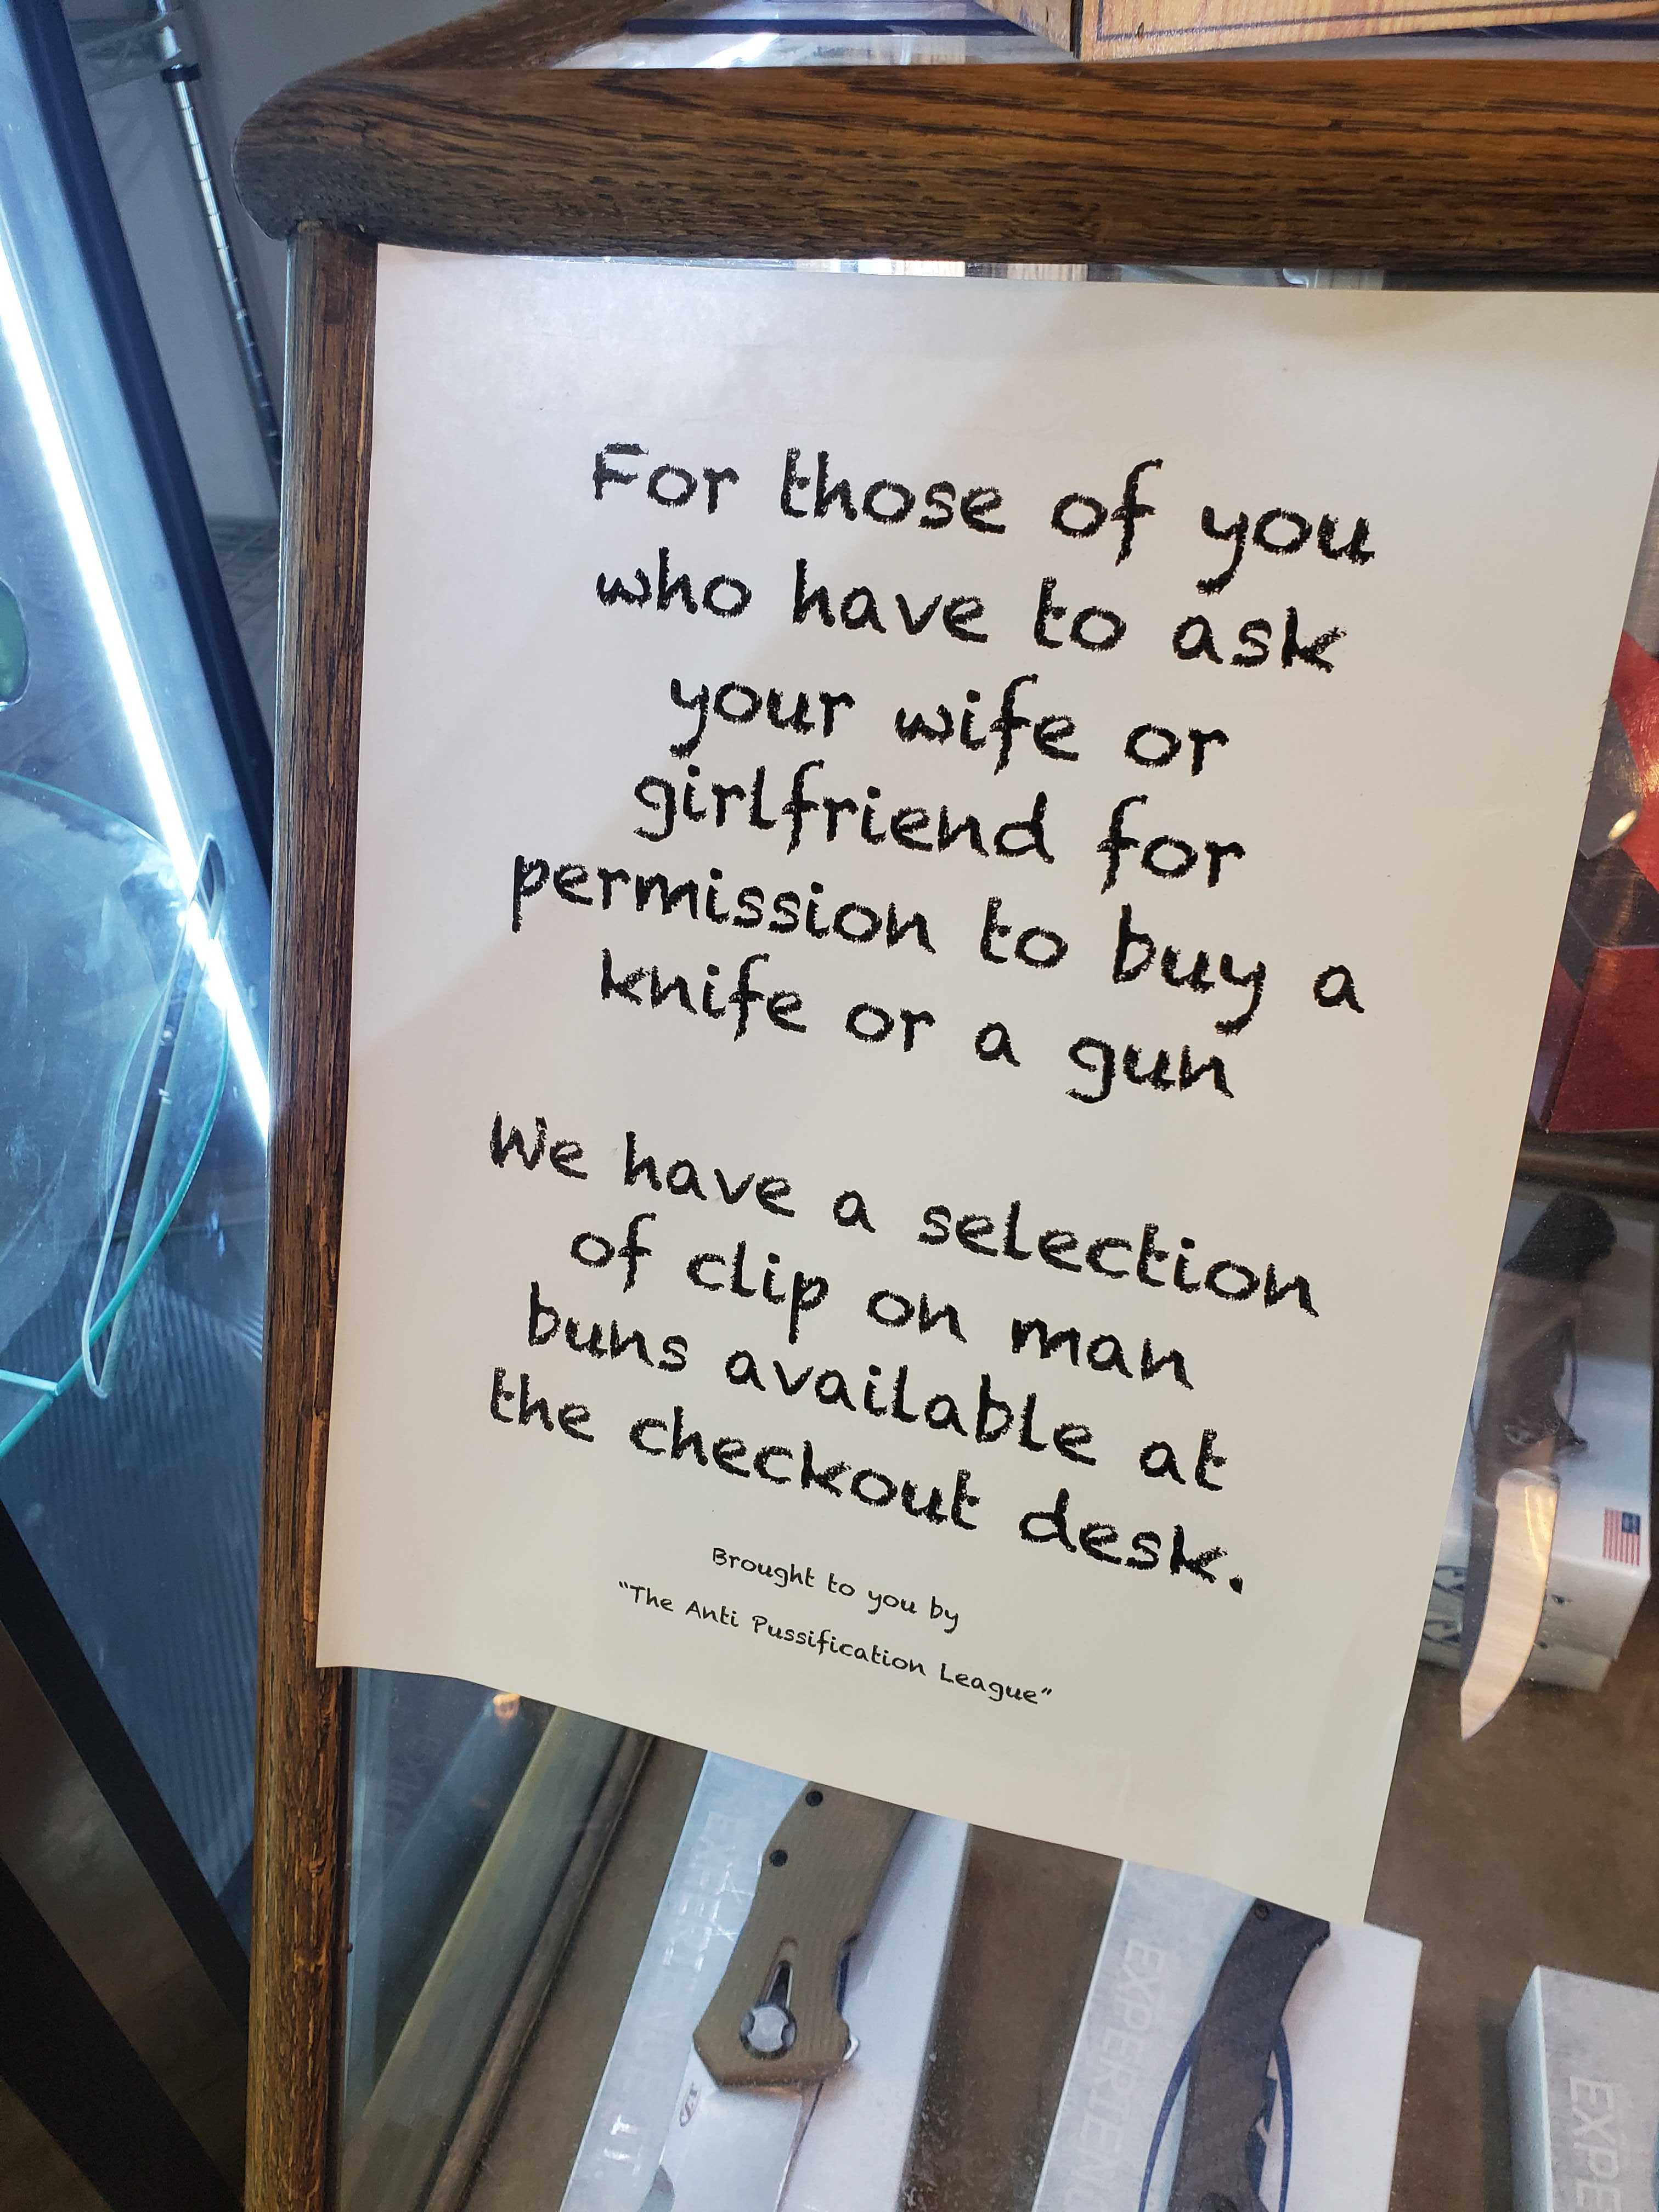 For those of you
who have to ask
your wife or
girlfriend for
permission to buy a
knife or a gun
We have a selection
of clip on man
buns available at
the checkout desk.
Brought to you by
"The Anti Pussification League"
EXPERIENCE
EXPERIEN
EXPE